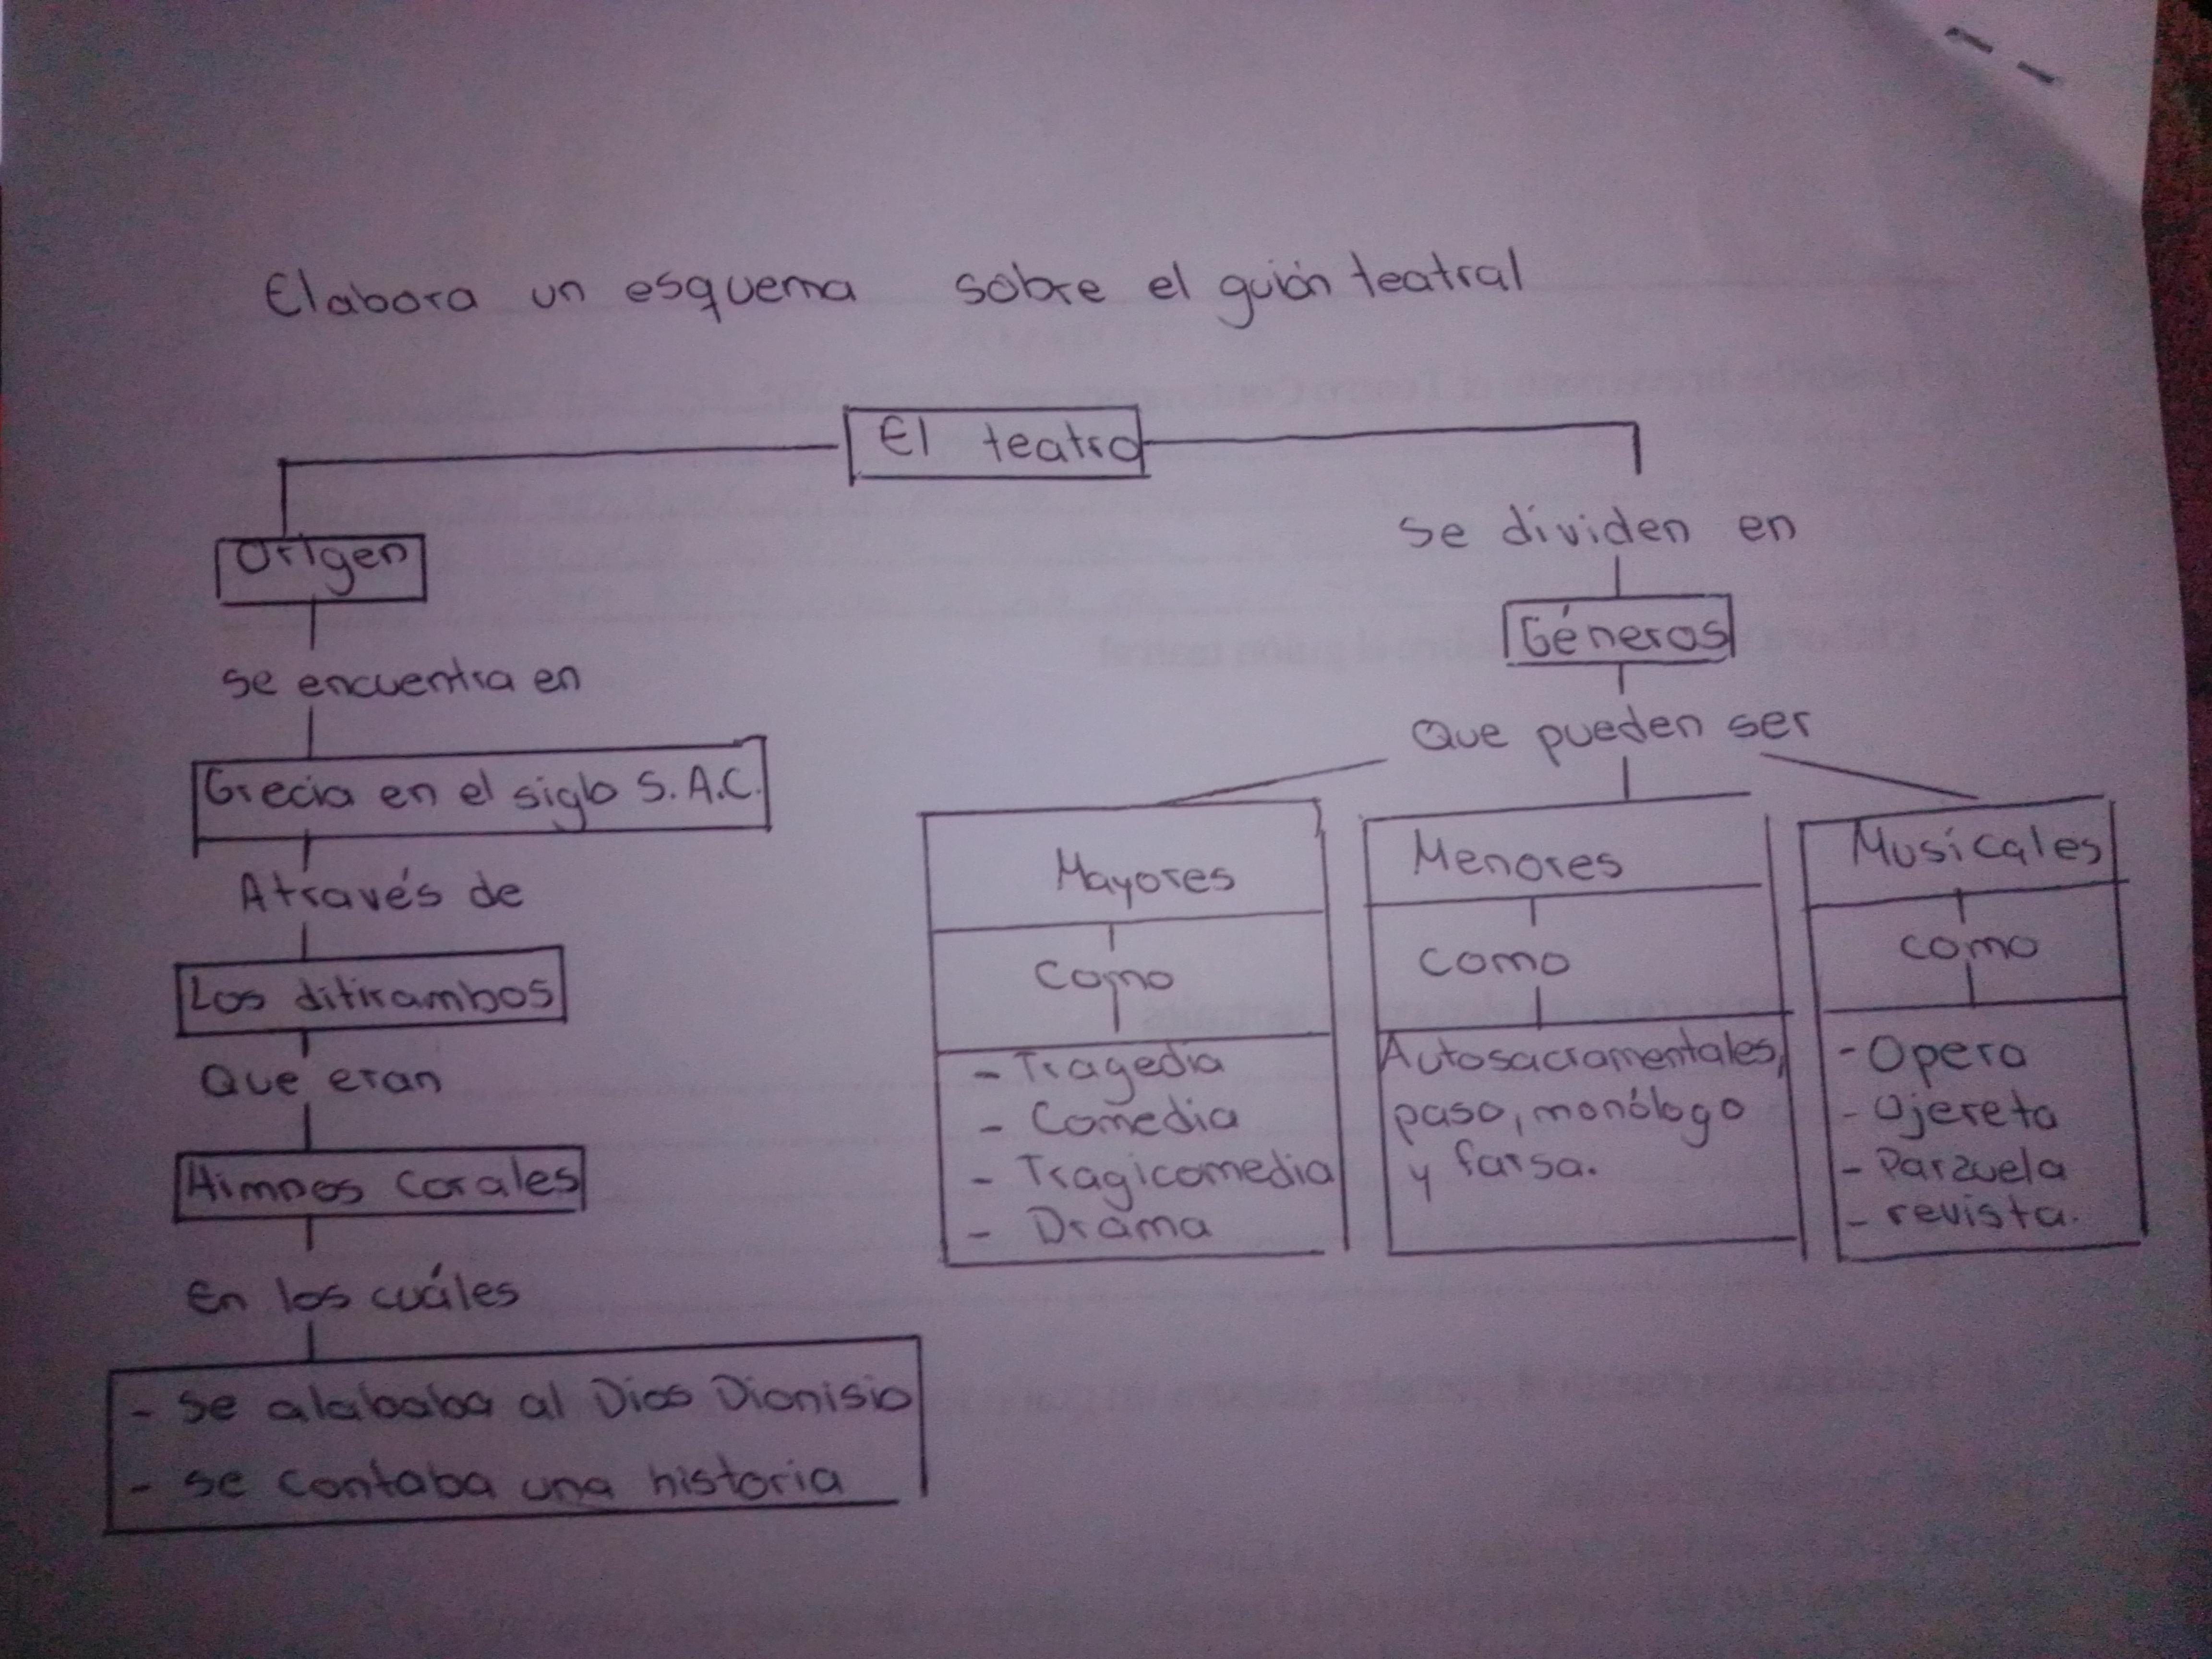 Elabora un esquema sobre el guión teatral
El teatro
Origen
se encuentra en
Grecia en el siglo S. A.C.
Através de
Los ditirambos
Que eran
Himnos corales
En los cuáles
- se alababa al Dios Dionisio
- se contaba una historia
se dividen en
Géneros
Que pueden ser
Mayores
Como
- Tragedia
- Comedia
- Tragicomedia
- Drama
Menores
Como
Autosacramentales,
paso, monólogo
y farsa.
Musicales
como
- Opera
- Ojereta
- Parzuela
- revista.